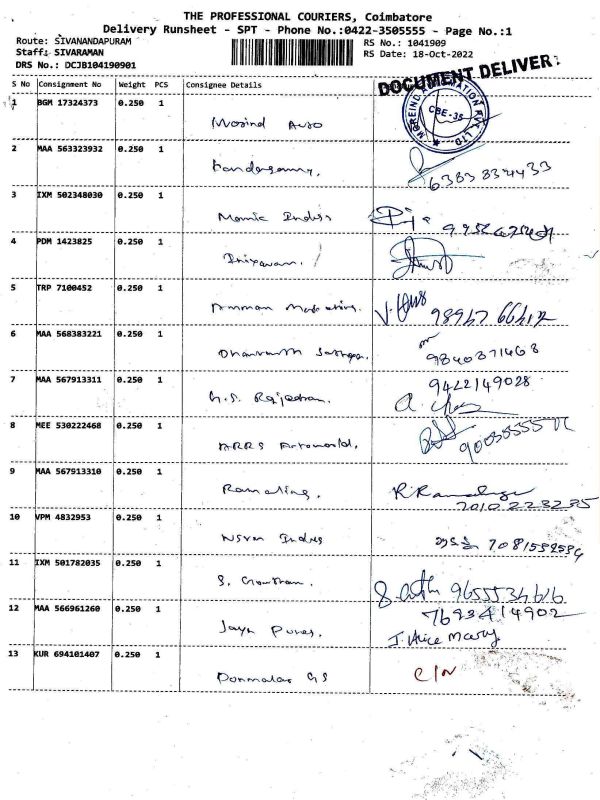 THE PROFESSIONAL COURIERS, Coimbatore
Delivery Runsheet - SPT - Phone No.:0422-3505555 - Page No.:1
Route: SIVANANDAPURAM
RS No.: 1041909
Staff: SIVARAMAN
RS Date: 18-Oct-2022
DRS No.: DCJB104190901
DOCUMENT DELIVER
S No Consignment No Weight PCS Consignee Details
1 BGM 17324373 0.250 1
CBE-35
2 MAA 563323932 0.250 1 Kandasamy.
6383834433
3 IXM 502348030 0.250 1
4 PDM 1423825 0.250 1
5 TRP 7100452 0.250 1 Amman Marketing.
98947 66412
6 MAA 568383221 0.250 1
9840371468
7 MAA 567913311 0.250 1 G.S. Rajendran.
9422149028
8 MEE 530222468 0.250 1 ARRS Autoworld.
9 MAA 567913310 0.250 1 Ramaling.
7010223235
10 VPM 4832953 0.250 1
11 IXM 501782035 0.250 1 S. Gowtham.
9655534616
12 MAA 566961260 0.250 1 Jaya
7693414902
J. Alice Mary
13 KUR 694101407 0.250 1 Ponmalar GS C/N